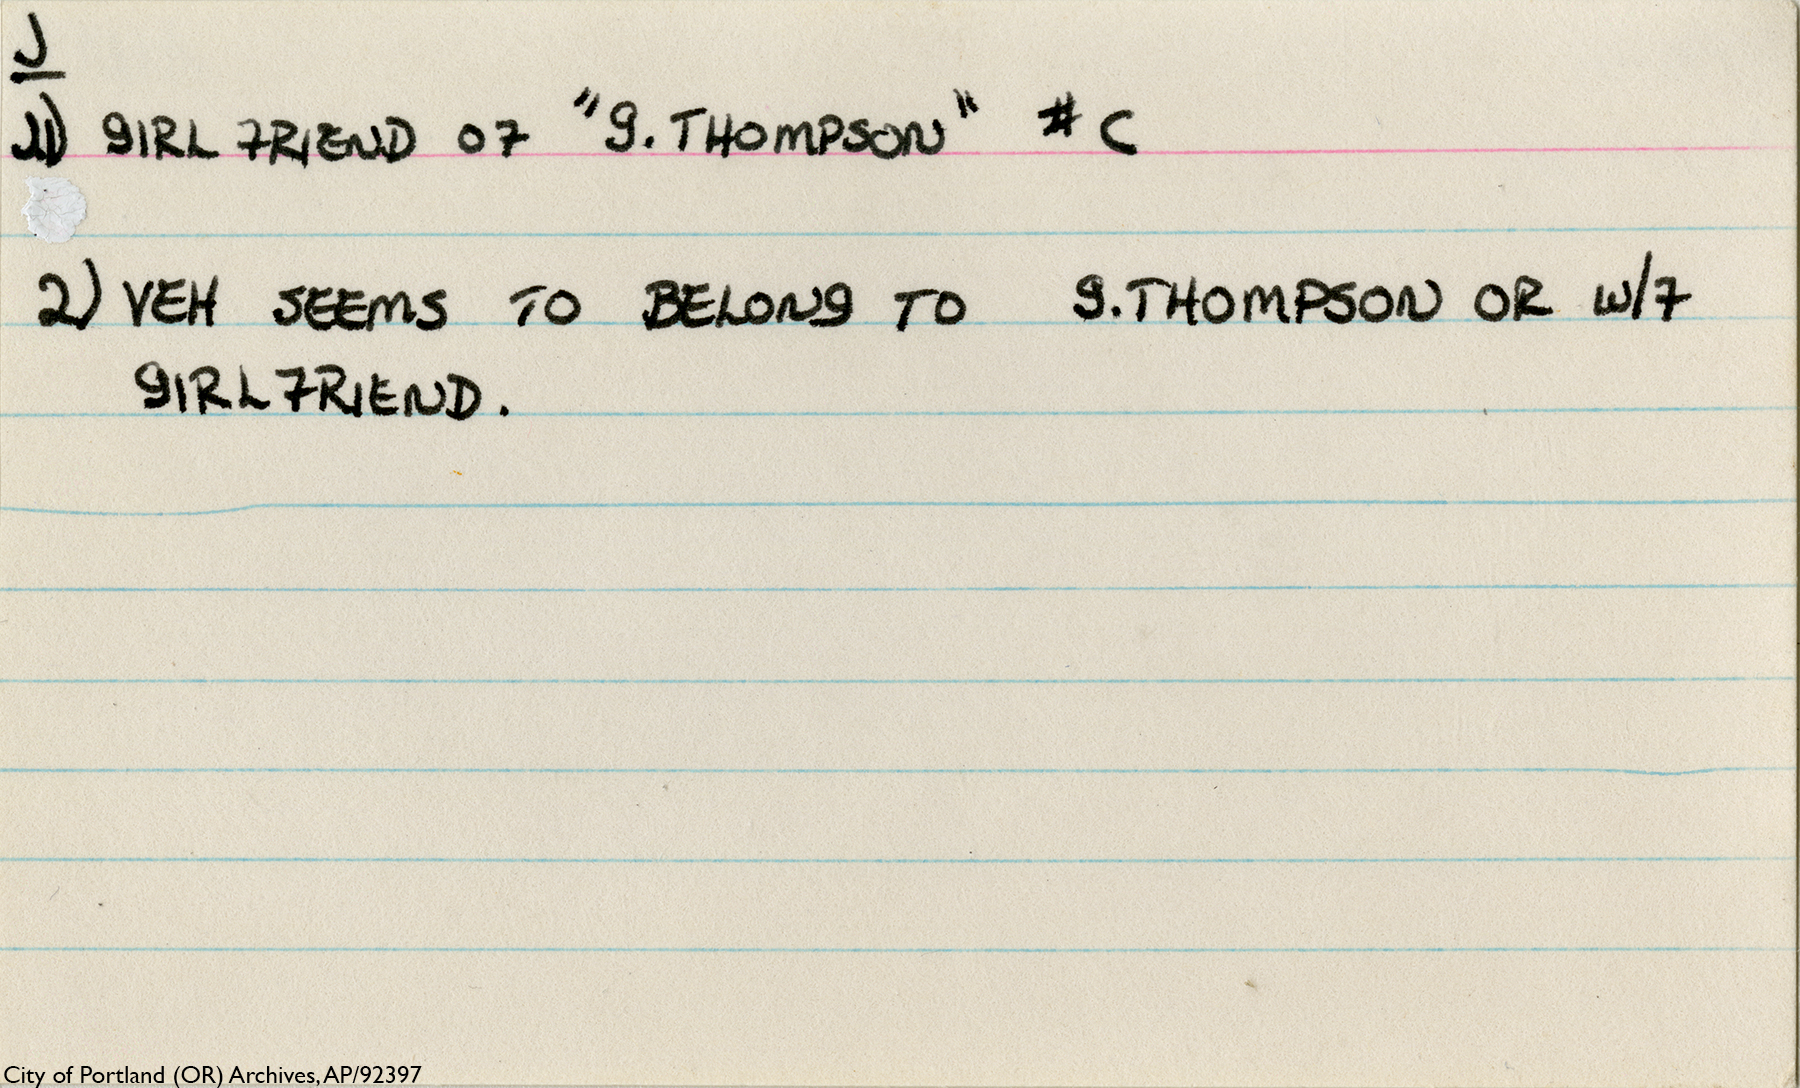 J
1) GIRLFRIEND OF "G. THOMPSON" # C
2) VEH SEEMS TO BELONG TO G. THOMPSON OR W/F
GIRLFRIEND.
City of Portland (OR) Archives, AP/92397